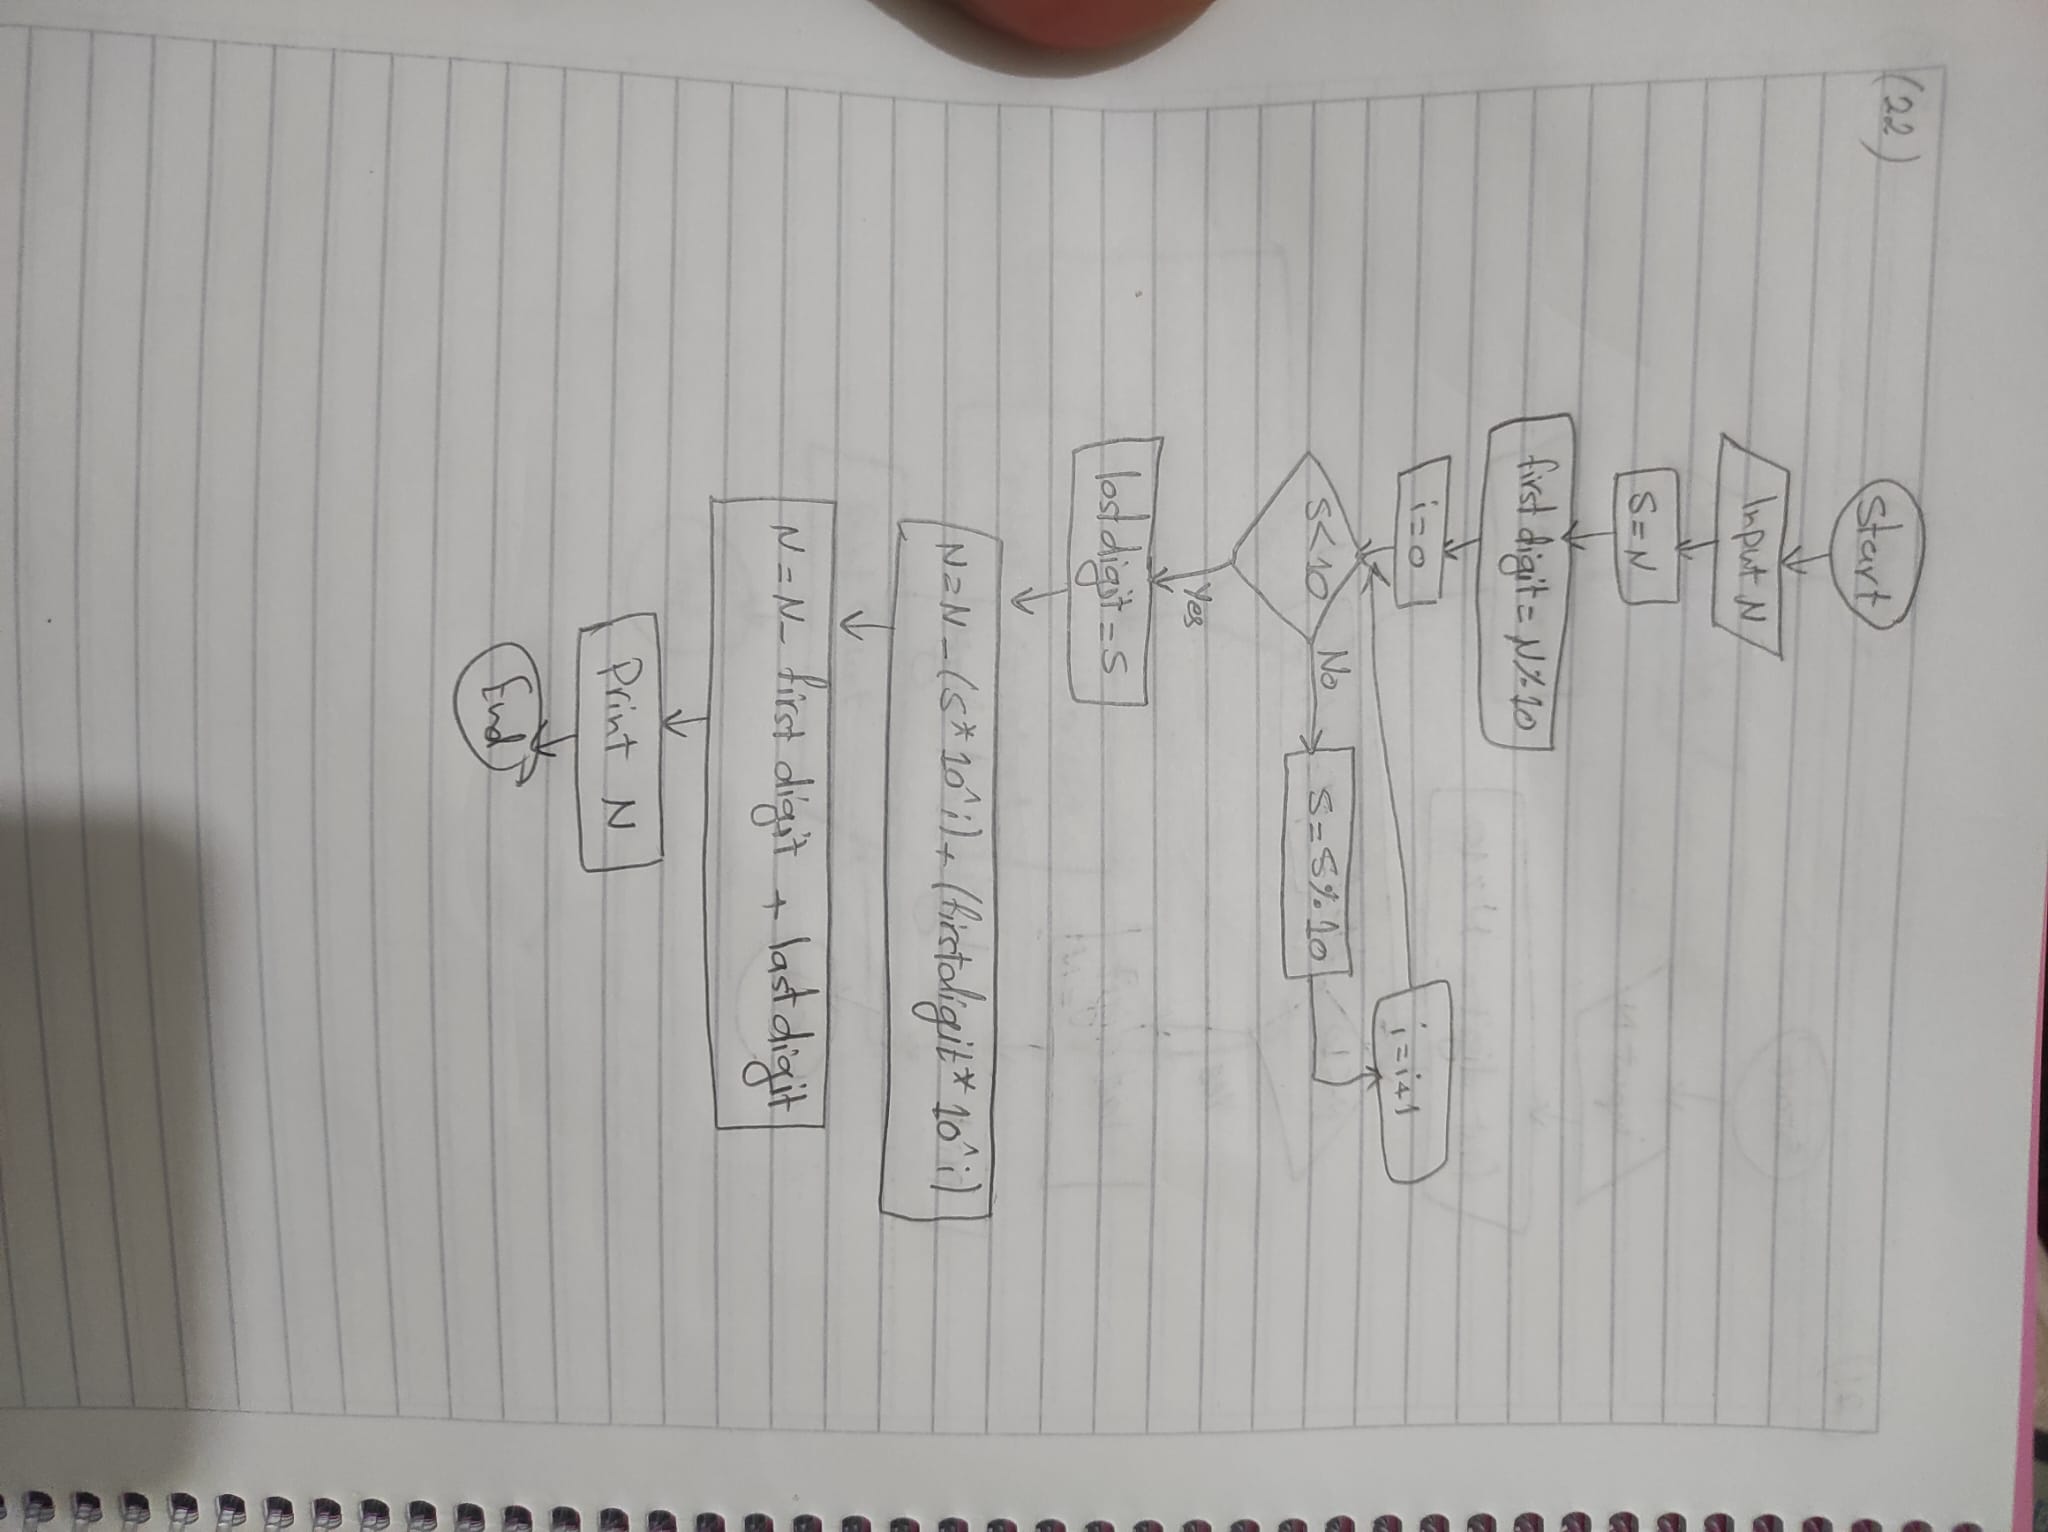 (22)
Start
Input N
S=N
first digit = N%10
i=0
S<10
No
S=S%10
i=i+1
Yes
lost digit = S
N=N-(S*10^i)+(firstdigit*10^i)
N=N-first digit + last digit
Print N
End